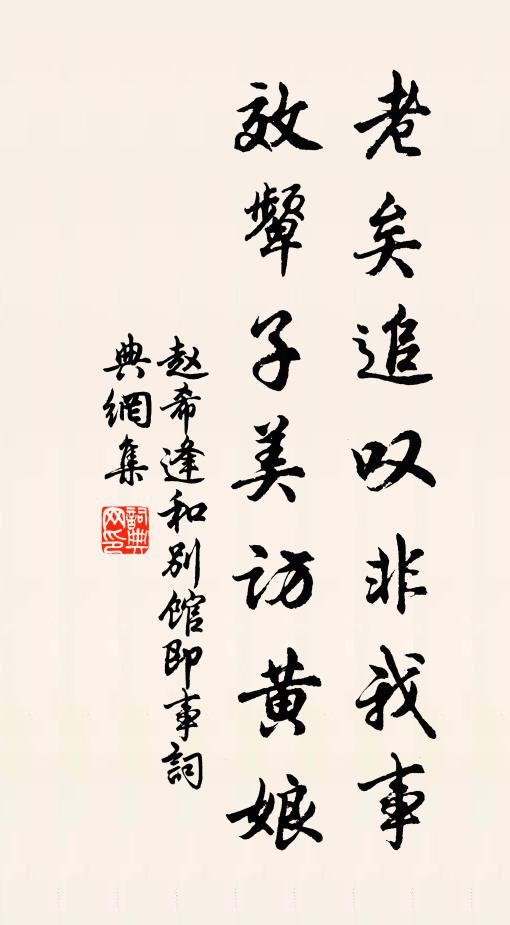 老矣追叹非我事
效颦子美访黄娘
赵希逢和别馆即事詞
典網集
詞典
网印